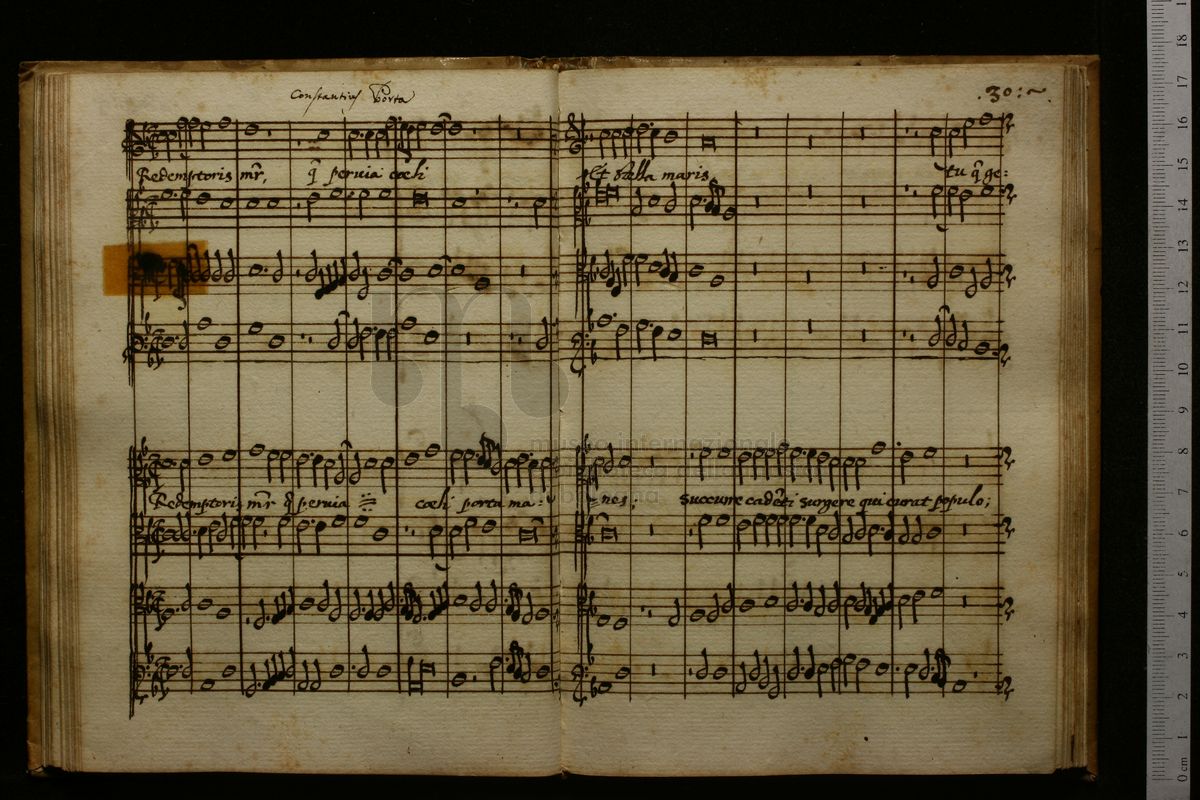 Constantius Porta
.30:~.
Redemptoris mr̃, q̃ peruia cæli
Et stella maris, tu q̃ ge:
museo internazionale
Redemptoris mr̃ q̃ peruia cæli porta ma:
nes; Succurre cadẽti surgere qui curat populo;
18
17
16
15
14
13
12
11
10
9
8
7
6
5
4
3
2
1
0 cm